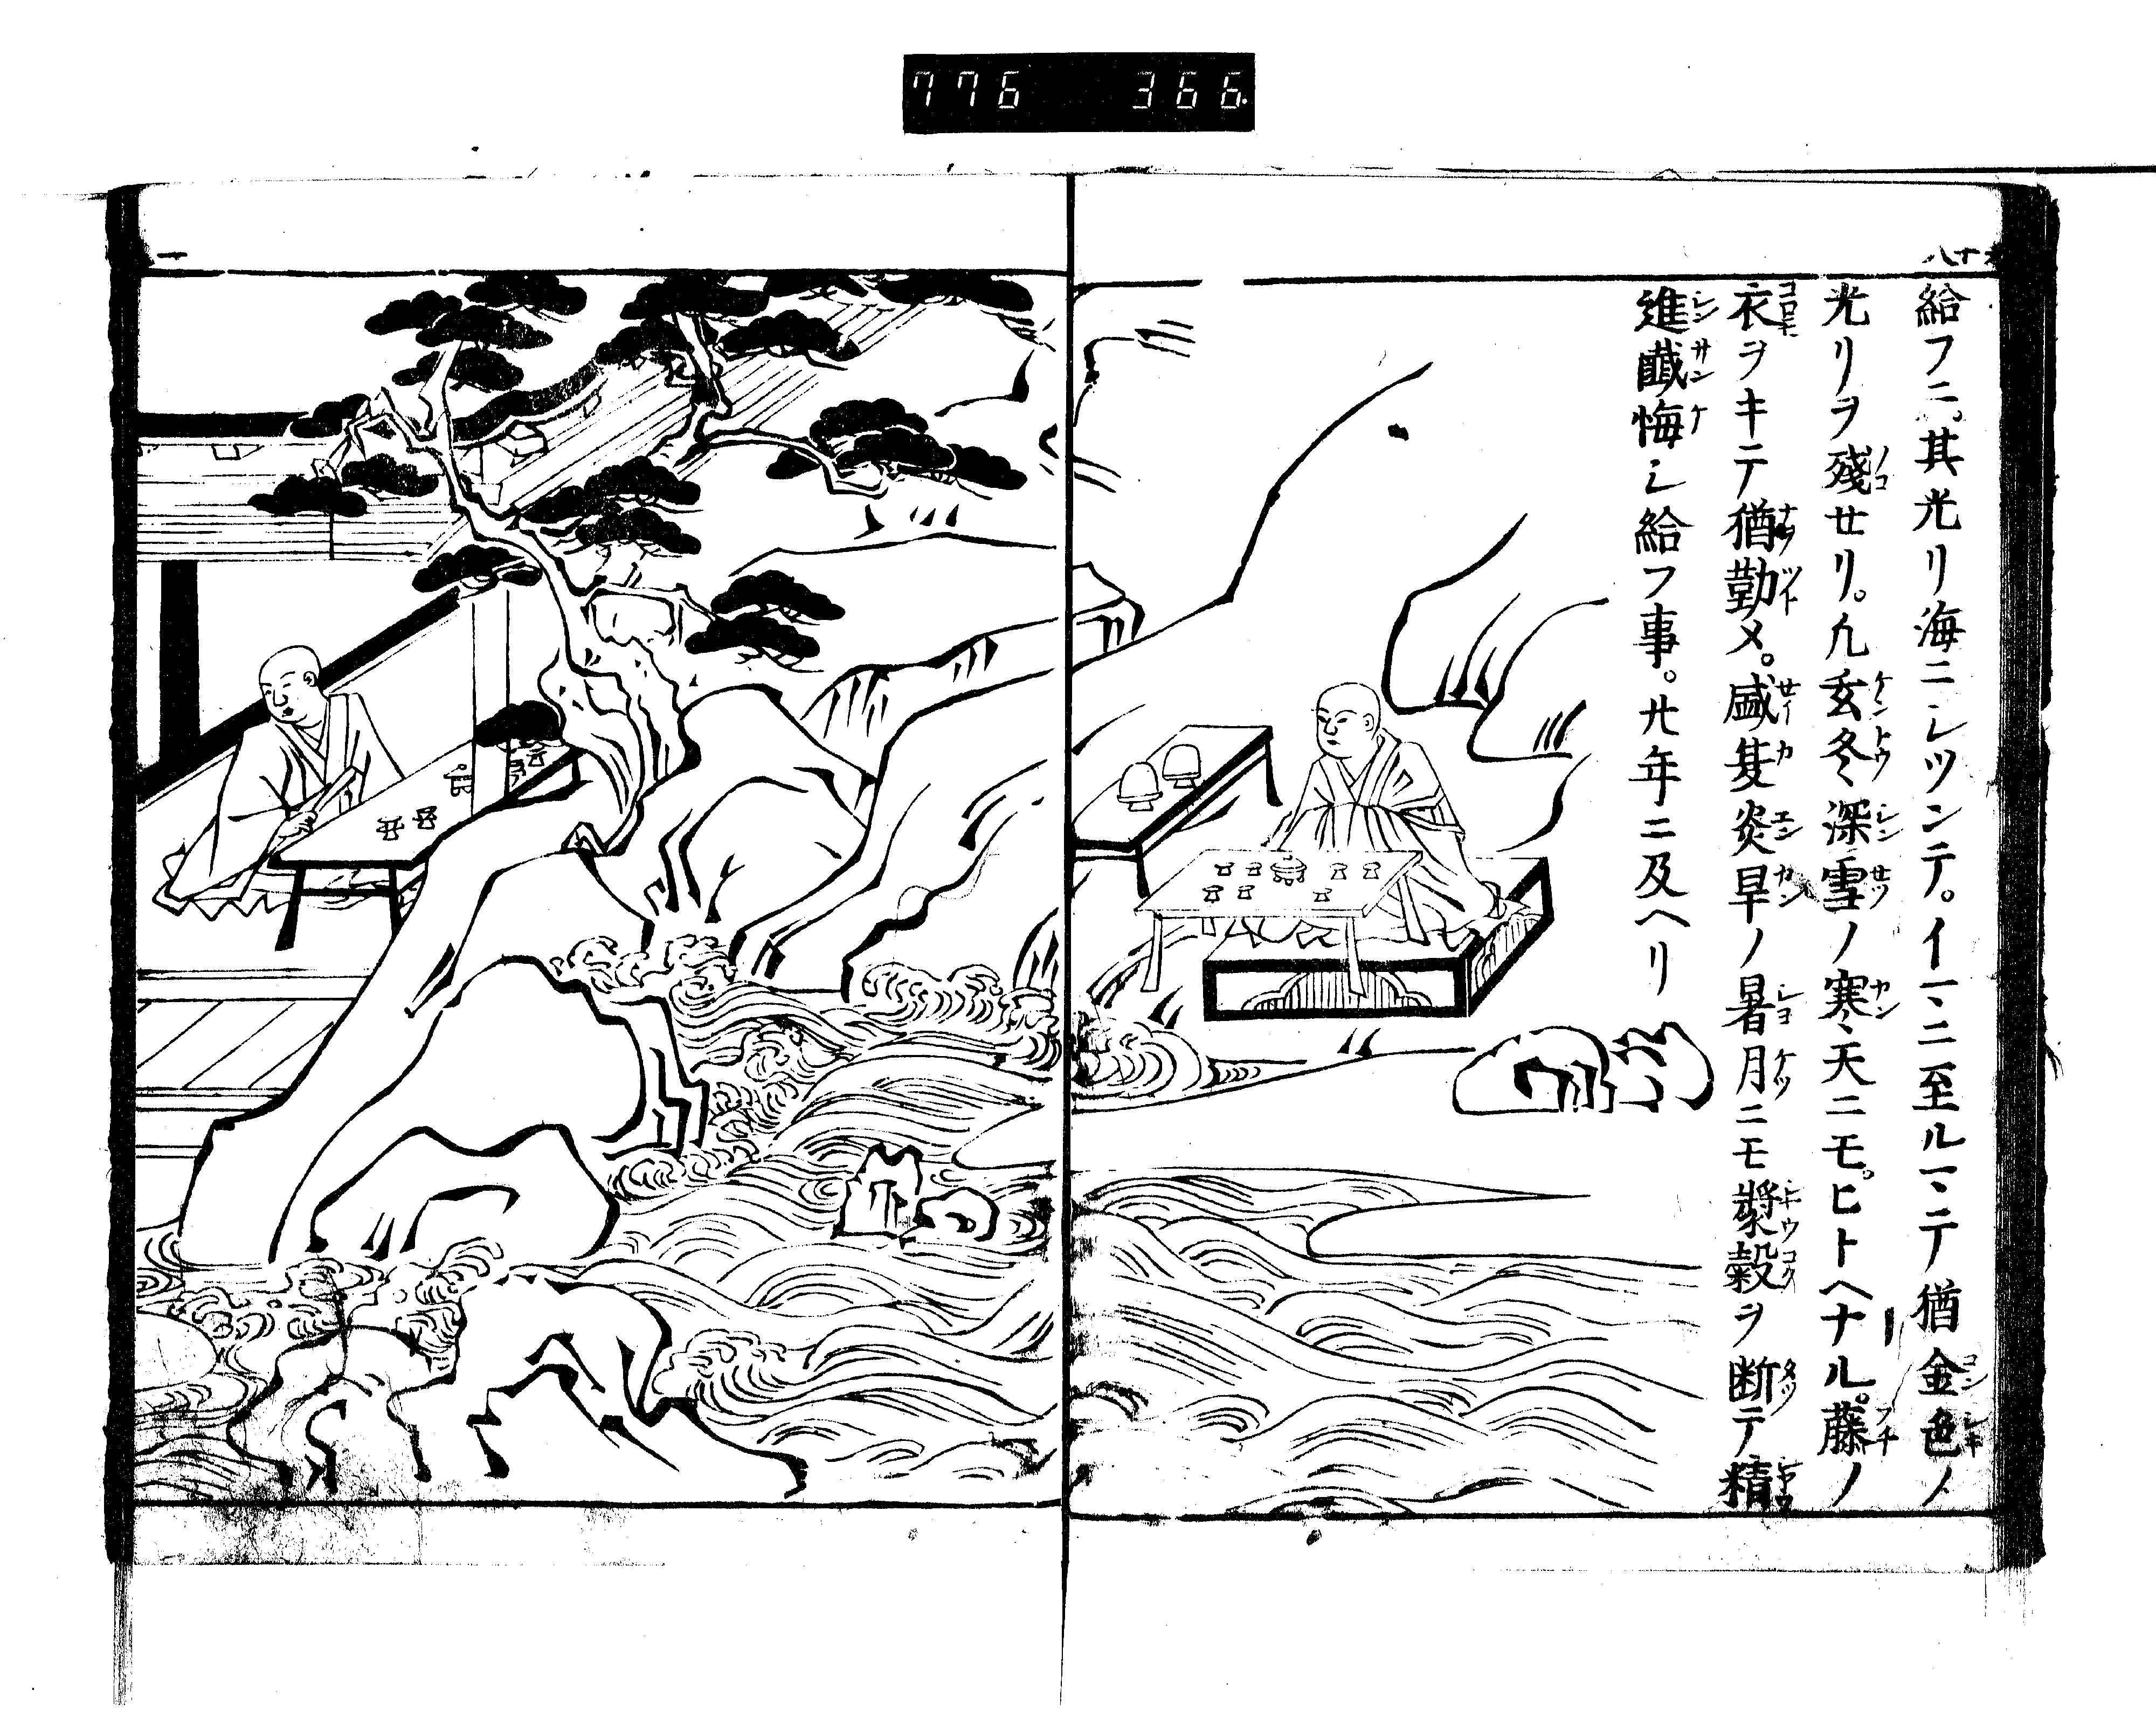 776 366.
給フニ。其光リ海ニシヅンテ。イマニ至ルマデ猶金色ノ
光リヲ殘セリ。凢玄冬深雪ノ寒天ニモ。ヒトヘナル。藤ノ
衣ヲキテ猶勤メ。盛夏炎旱ノ暑月ニモ漿穀ヲ断テ精
進懺悔シ給フ事。廿年ニ及ヘリ